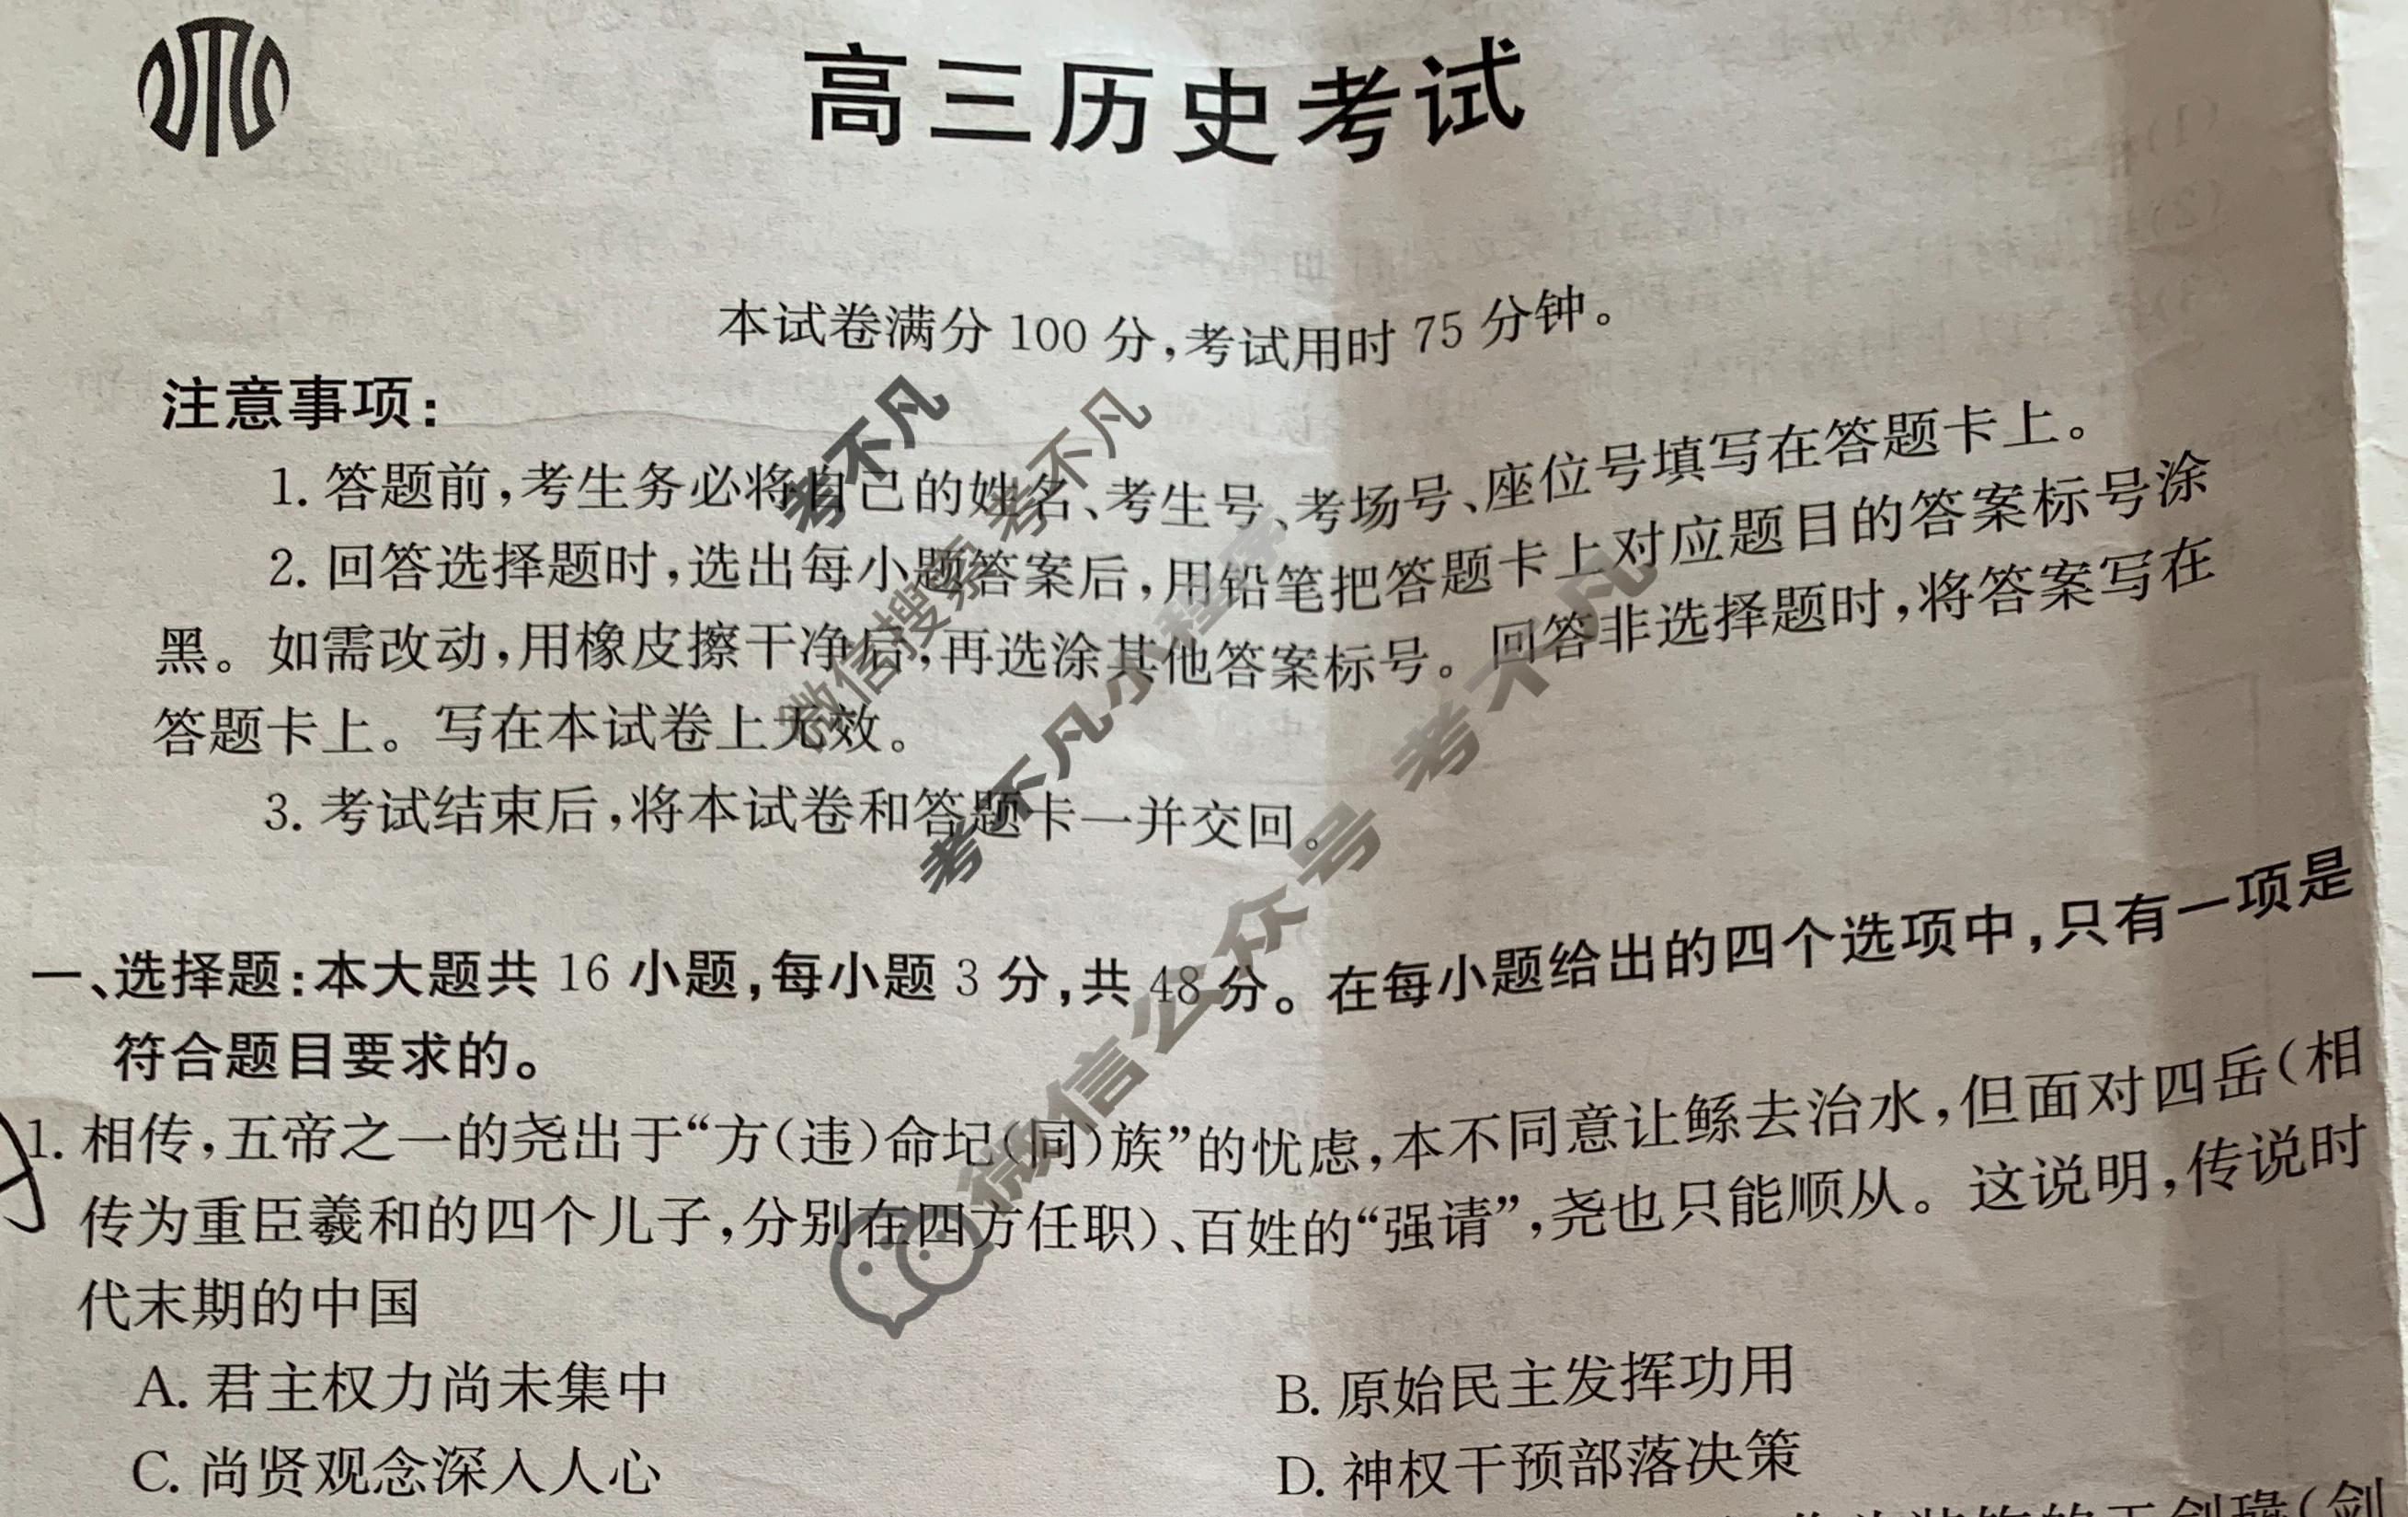 高三历史考试
本试卷满分 100 分,考试用时 75 分钟。
注意事项:
1. 答题前,考生务必将自己的姓名、考生号、考场号、座位号填写在答题卡上。
2. 回答选择题时,选出每小题答案后,用铅笔把答题卡上对应题目的答案标号涂
黑。如需改动,用橡皮擦干净后,再选涂其他答案标号。回答非选择题时,将答案写在
答题卡上。写在本试卷上无效。
3. 考试结束后,将本试卷和答题卡一并交回。
一、选择题:本大题共 16 小题,每小题 3 分,共 48 分。在每小题给出的四个选项中,只有一项是
符合题目要求的。
1. 相传,五帝之一的尧出于“方(违)命圮(同)族”的忧虑,本不同意让鲧去治水,但面对四岳(相
传为重臣羲和的四个儿子,分别在四方任职)、百姓的“强请”,尧也只能顺从。这说明,传说时
代末期的中国
A. 君主权力尚未集中
B. 原始民主发挥功用
C. 尚贤观念深入人心
D. 神权干预部落决策
考不凡
微信搜索 考不凡
考不凡小程序
微信公众号 考不凡